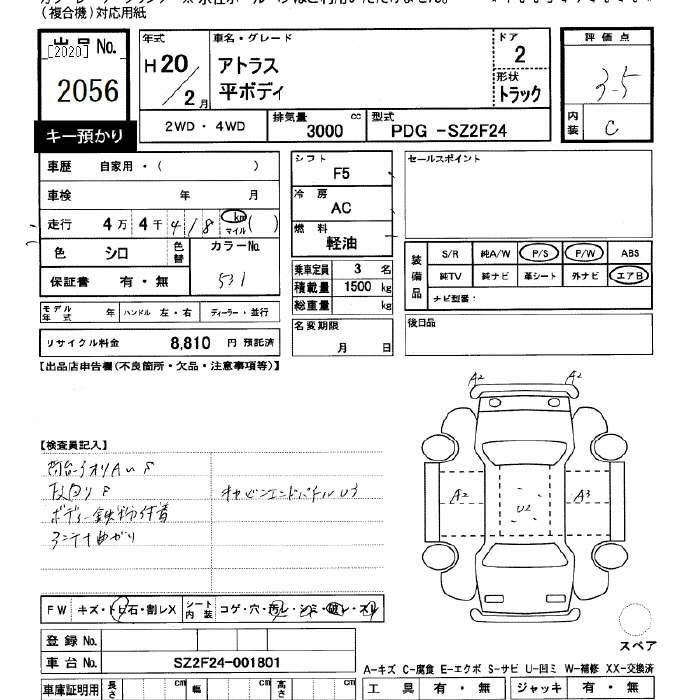 (複合機)対応用紙
出品No. [2020] 2056
キー預かり
年式 H20/2月
車名・グレード アトラス 平ボディ
ドア 2
形状 トラック
評価点 3.5
内装 C
2WD・4WD
排気量 3000 cc
型式 PDG -SZ2F24
車歴 自家用・( )
車検 年 月
走行 4万 4千 418 km マイル ( )
色 シロ 色替 カラーNo. 531
保証書 有・無
モデル年式 年 ハンドル 左・右 ディーラー・並行
リサイクル料金 8,810 円 預託済
シフト F5
冷房 AC
燃料 軽油
乗車定員 3 名
積載量 1500 kg
総重量 kg
名変期限 月 日
セールスポイント
装備品 S/R 純A/W P/S P/W ABS
純TV 純ナビ 革シート 外ナビ エアB
ナビ型番:
後日品
【出品店申告欄(不良箇所・欠品・注意事項等)】
【検査員記入】
ボディー鉄粉付着
アンテナ曲がり
A2 A2
A2 U2 A3
FW キズ・トビ石・割レX シート内装 コゲ・穴・汚レ・シミ・破レ・スレ
登録No.
車台No. SZ2F24-001801
スペア
A-キズ C-腐食 E-エクボ S-サビ U-凹ミ W-補修 XX-交換済
車庫証明用 長さ cm 幅 cm 高さ cm
工具 有・無 ジャッキ 有・無